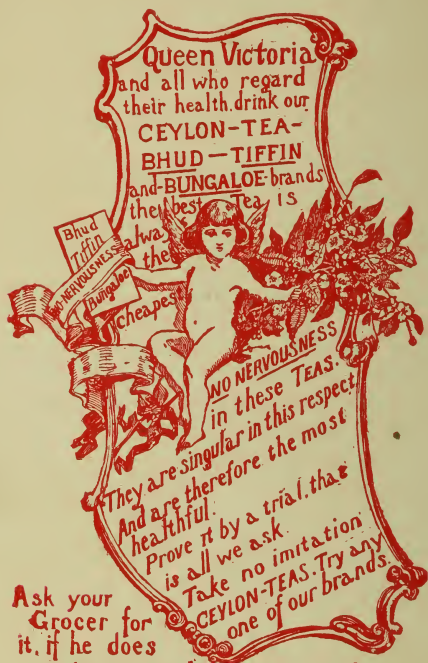 Queen Victoria
and all who regard
their health, drink our
CEYLON-TEA-
BHUD - TIFFIN
and-BUNGALOE-brands
the best Tea is
alwa
the
cheapes
Bhud
Tiffin
NO NERVOUSNESS
Bungaloe
NO NERVOUSNESS
in these TEAS.
They are singular in this respect
And are therefore the most
healthful.
Prove it by a trial, that
is all we ask.
Take no imitation
CEYLON-TEAS. Try any
one of our brands.
Ask your
Grocer for
it, if he does